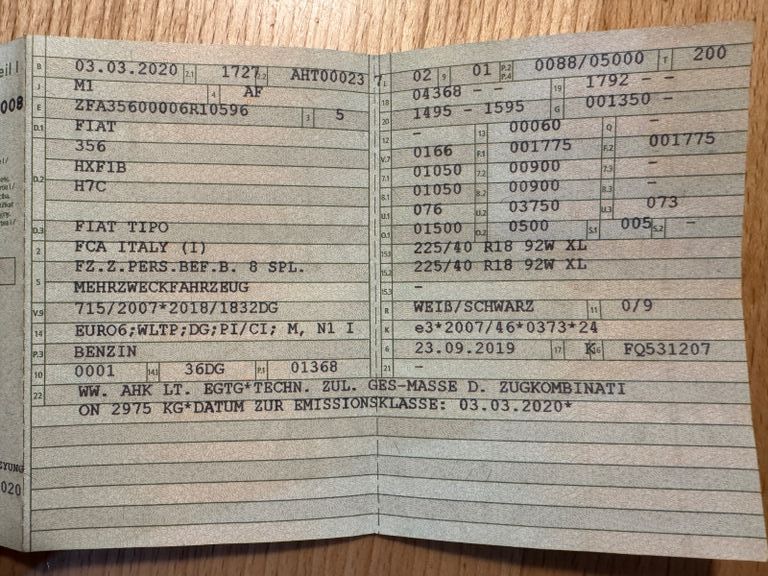 eil I
B 03.03.2020 2.1 1727 2.2 AHT00023 7
J M1 4 AF
E ZFA35600006R10596 3 5
D.1 FIAT
356
D.2 HXF1B
H7C
D.3 FIAT TIPO
2 FCA ITALY (I)
5 FZ.Z.PERS.BEF.B. 8 SPL.
MEHRZWECKFAHRZEUG
V.9 715/2007*2018/1832DG
14 EURO6;WLTP;DG;PI/CI; M, N1 I
P.3 BENZIN
10 0001 14.1 36DG P.1 01368
22 WW. AHK LT. EGTG*TECHN. ZUL. GES-MASSE D. ZUGKOMBINATI
ON 2975 KG*DATUM ZUR EMISSIONSKLASSE: 03.03.2020*
L 02 9 01 P.2 P.4 0088/05000 T 200
18 04368 - - 19 1792 - -
20 1495 - 1595 G 001350 -
12 - 13 00060 Q -
V.7 0166 F.1 001775 F.2 001775
7.1 01050 7.2 00900 7.3 -
8.1 01050 8.2 00900 8.3 -
U.1 076 U.2 03750 U.3 073
O.1 01500 O.2 0500 S.1 005 S.2 -
15.1 225/40 R18 92W XL
15.2 225/40 R18 92W XL
15.3 -
R WEIß/SCHWARZ 11 0/9
K e3*2007/46*0373*24
6 23.09.2019 17 K 16 FQ531207
21 -
008
EYUNG
020